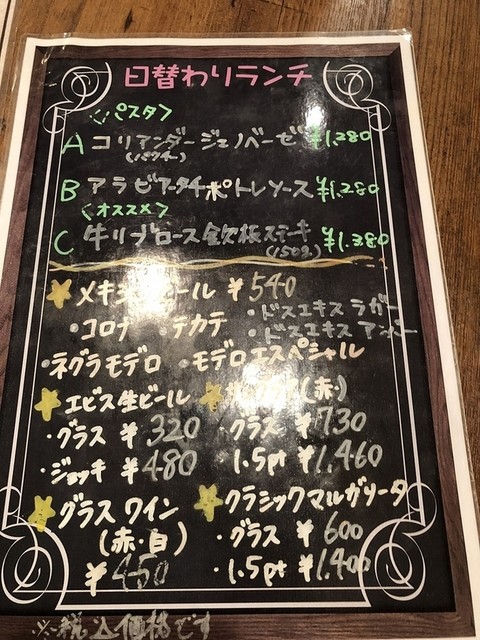 日替わりランチ
〈パスタ〉
A コリアンダージェノベーゼ ¥1,280
(パクチー)
B アラビアータチポトレソース ¥1,280
〈オススメ〉
C 牛リブロース鉄板ステーキ ¥1,380
(150g)
メキシコビール ¥540
・コロナ ・テカテ ・ドスエキス ラガー
・ドスエキス アンバー
・ネグラモデロ ・モデロエスペシャル
エビス生ビール
・グラス ¥320
・ジョッキ ¥480
(赤)
・グラス ¥730
・1.5pt ¥1,460
グラスワイン
(赤・白)
¥450
クラシックマルガリータ
・グラス ¥600
・1.5pt ¥1,400
※税込価格です